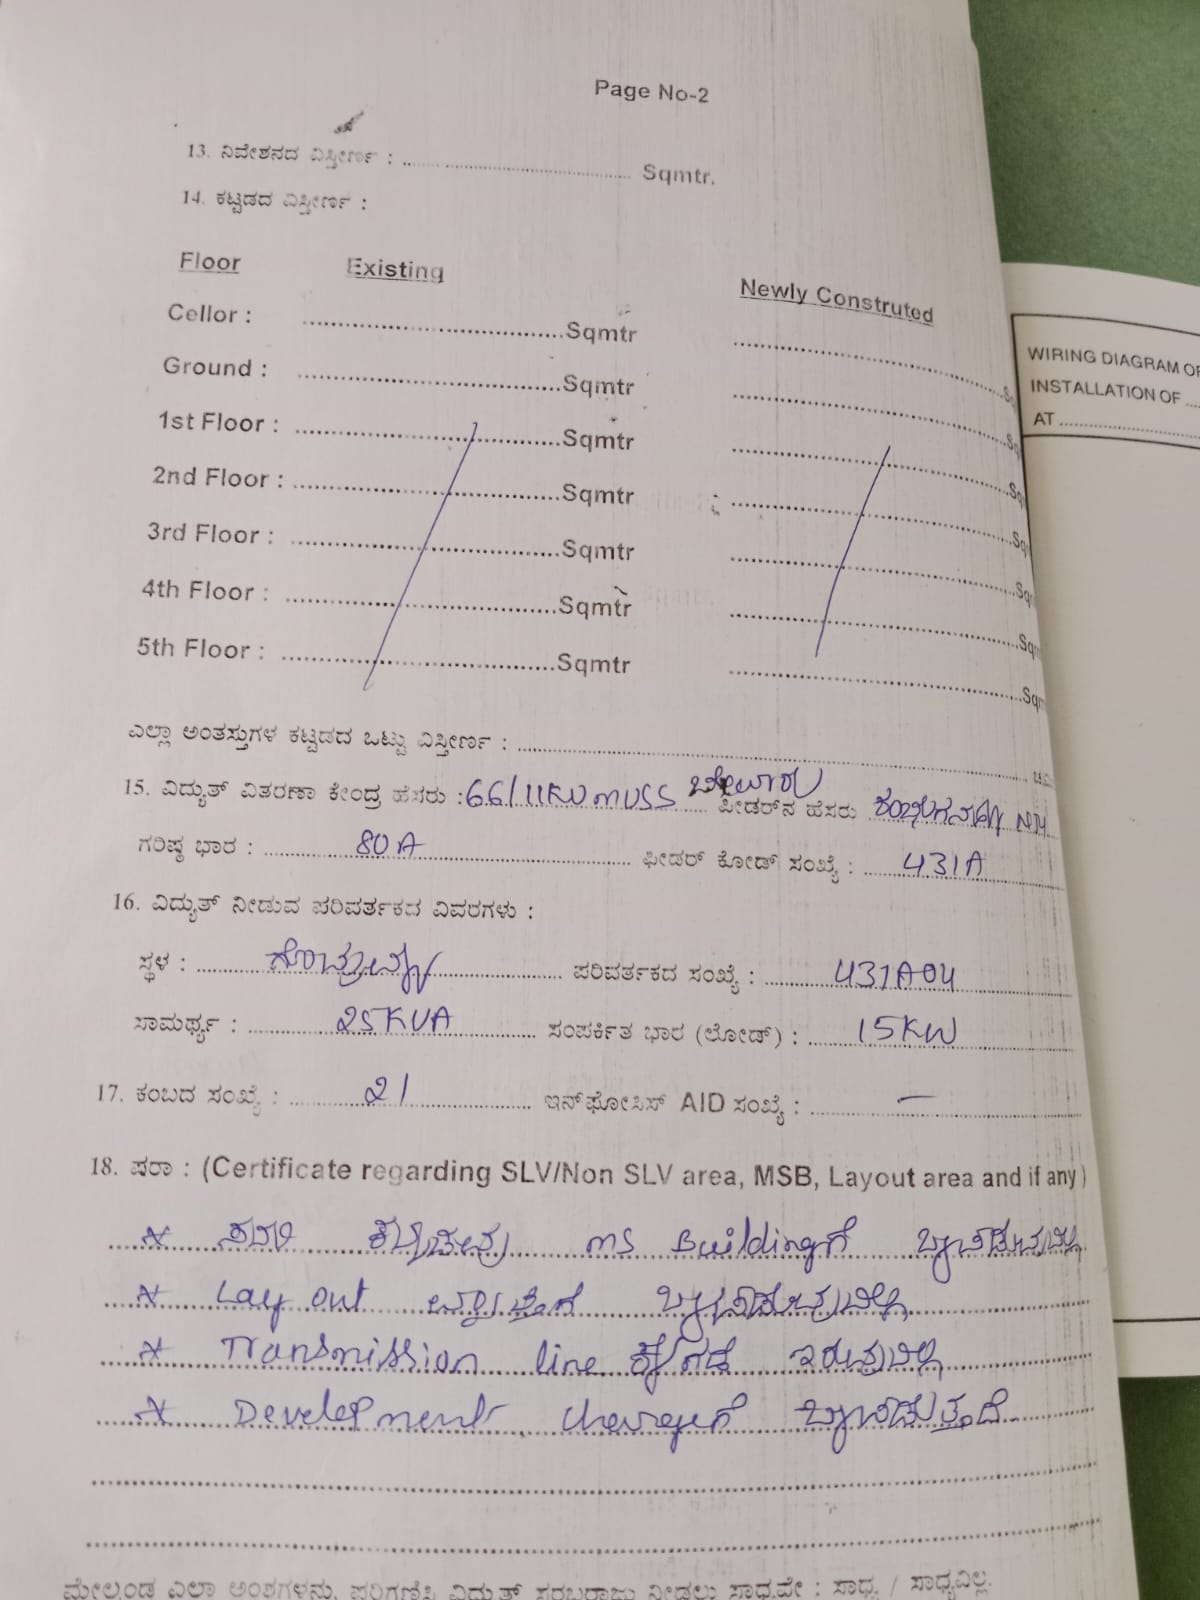 Page No-2
13. ನಿವೇಶನದ ವಿಸ್ತೀರ್ಣ : ........................................ Sqmtr.
14. ಕಟ್ಟಡದ ವಿಸ್ತೀರ್ಣ :
Floor Existing Newly Construted
Cellor : ........................................Sqmtr
Ground : ........................................Sqmtr
1st Floor : ........................................Sqmtr
2nd Floor : ........................................Sqmtr
3rd Floor : ........................................Sqmtr
4th Floor : ........................................Sqmtr
5th Floor : ........................................Sqmtr
ಎಲ್ಲಾ ಅಂತಸ್ತುಗಳ ಕಟ್ಟಡದ ಒಟ್ಟು ವಿಸ್ತೀರ್ಣ :
15. ವಿದ್ಯುತ್ ವಿತರಣಾ ಕೇಂದ್ರ ಹೆಸರು : 66/11KV MUSS ಫೀಡರ್‌ನ ಹೆಸರು
ಗರಿಷ್ಠ ಭಾರ : 80A ಫೀಡರ್ ಕೋಡ್ ಸಂಖ್ಯೆ : 431A
16. ವಿದ್ಯುತ್ ನೀಡುವ ಪರಿವರ್ತಕದ ವಿವರಗಳು :
ಸ್ಥಳ : ಪರಿವರ್ತಕದ ಸಂಖ್ಯೆ : 431A04
ಸಾಮರ್ಥ್ಯ : 25KVA ಸಂಪರ್ಕಿತ ಭಾರ (ಲೋಡ್) : 15KW
17. ಕಂಬದ ಸಂಖ್ಯೆ : 21 ಇನ್‌ಫೋಸಿಸ್ AID ಸಂಖ್ಯೆ : —
18. ಷರಾ : (Certificate regarding SLV/Non SLV area, MSB, Layout area and if any)
* ಸದರಿ ಕಟ್ಟಡವು MS Buildingಗೆ
* Lay out
* Transmission line ಇರುವುದಿಲ್ಲ
* Development chargeಗೆ
ಮೇಲ್ಕಂಡ ಎಲ್ಲಾ ಅಂಶಗಳನ್ನು ಪರಿಗಣಿಸಿ ವಿದ್ಯುತ್ ಸರಬರಾಜು ನೀಡಲು ಸಾಧ್ಯವೇ : ಸಾಧ್ಯ / ಸಾಧ್ಯವಿಲ್ಲ.
WIRING DIAGRAM OF
INSTALLATION OF
AT